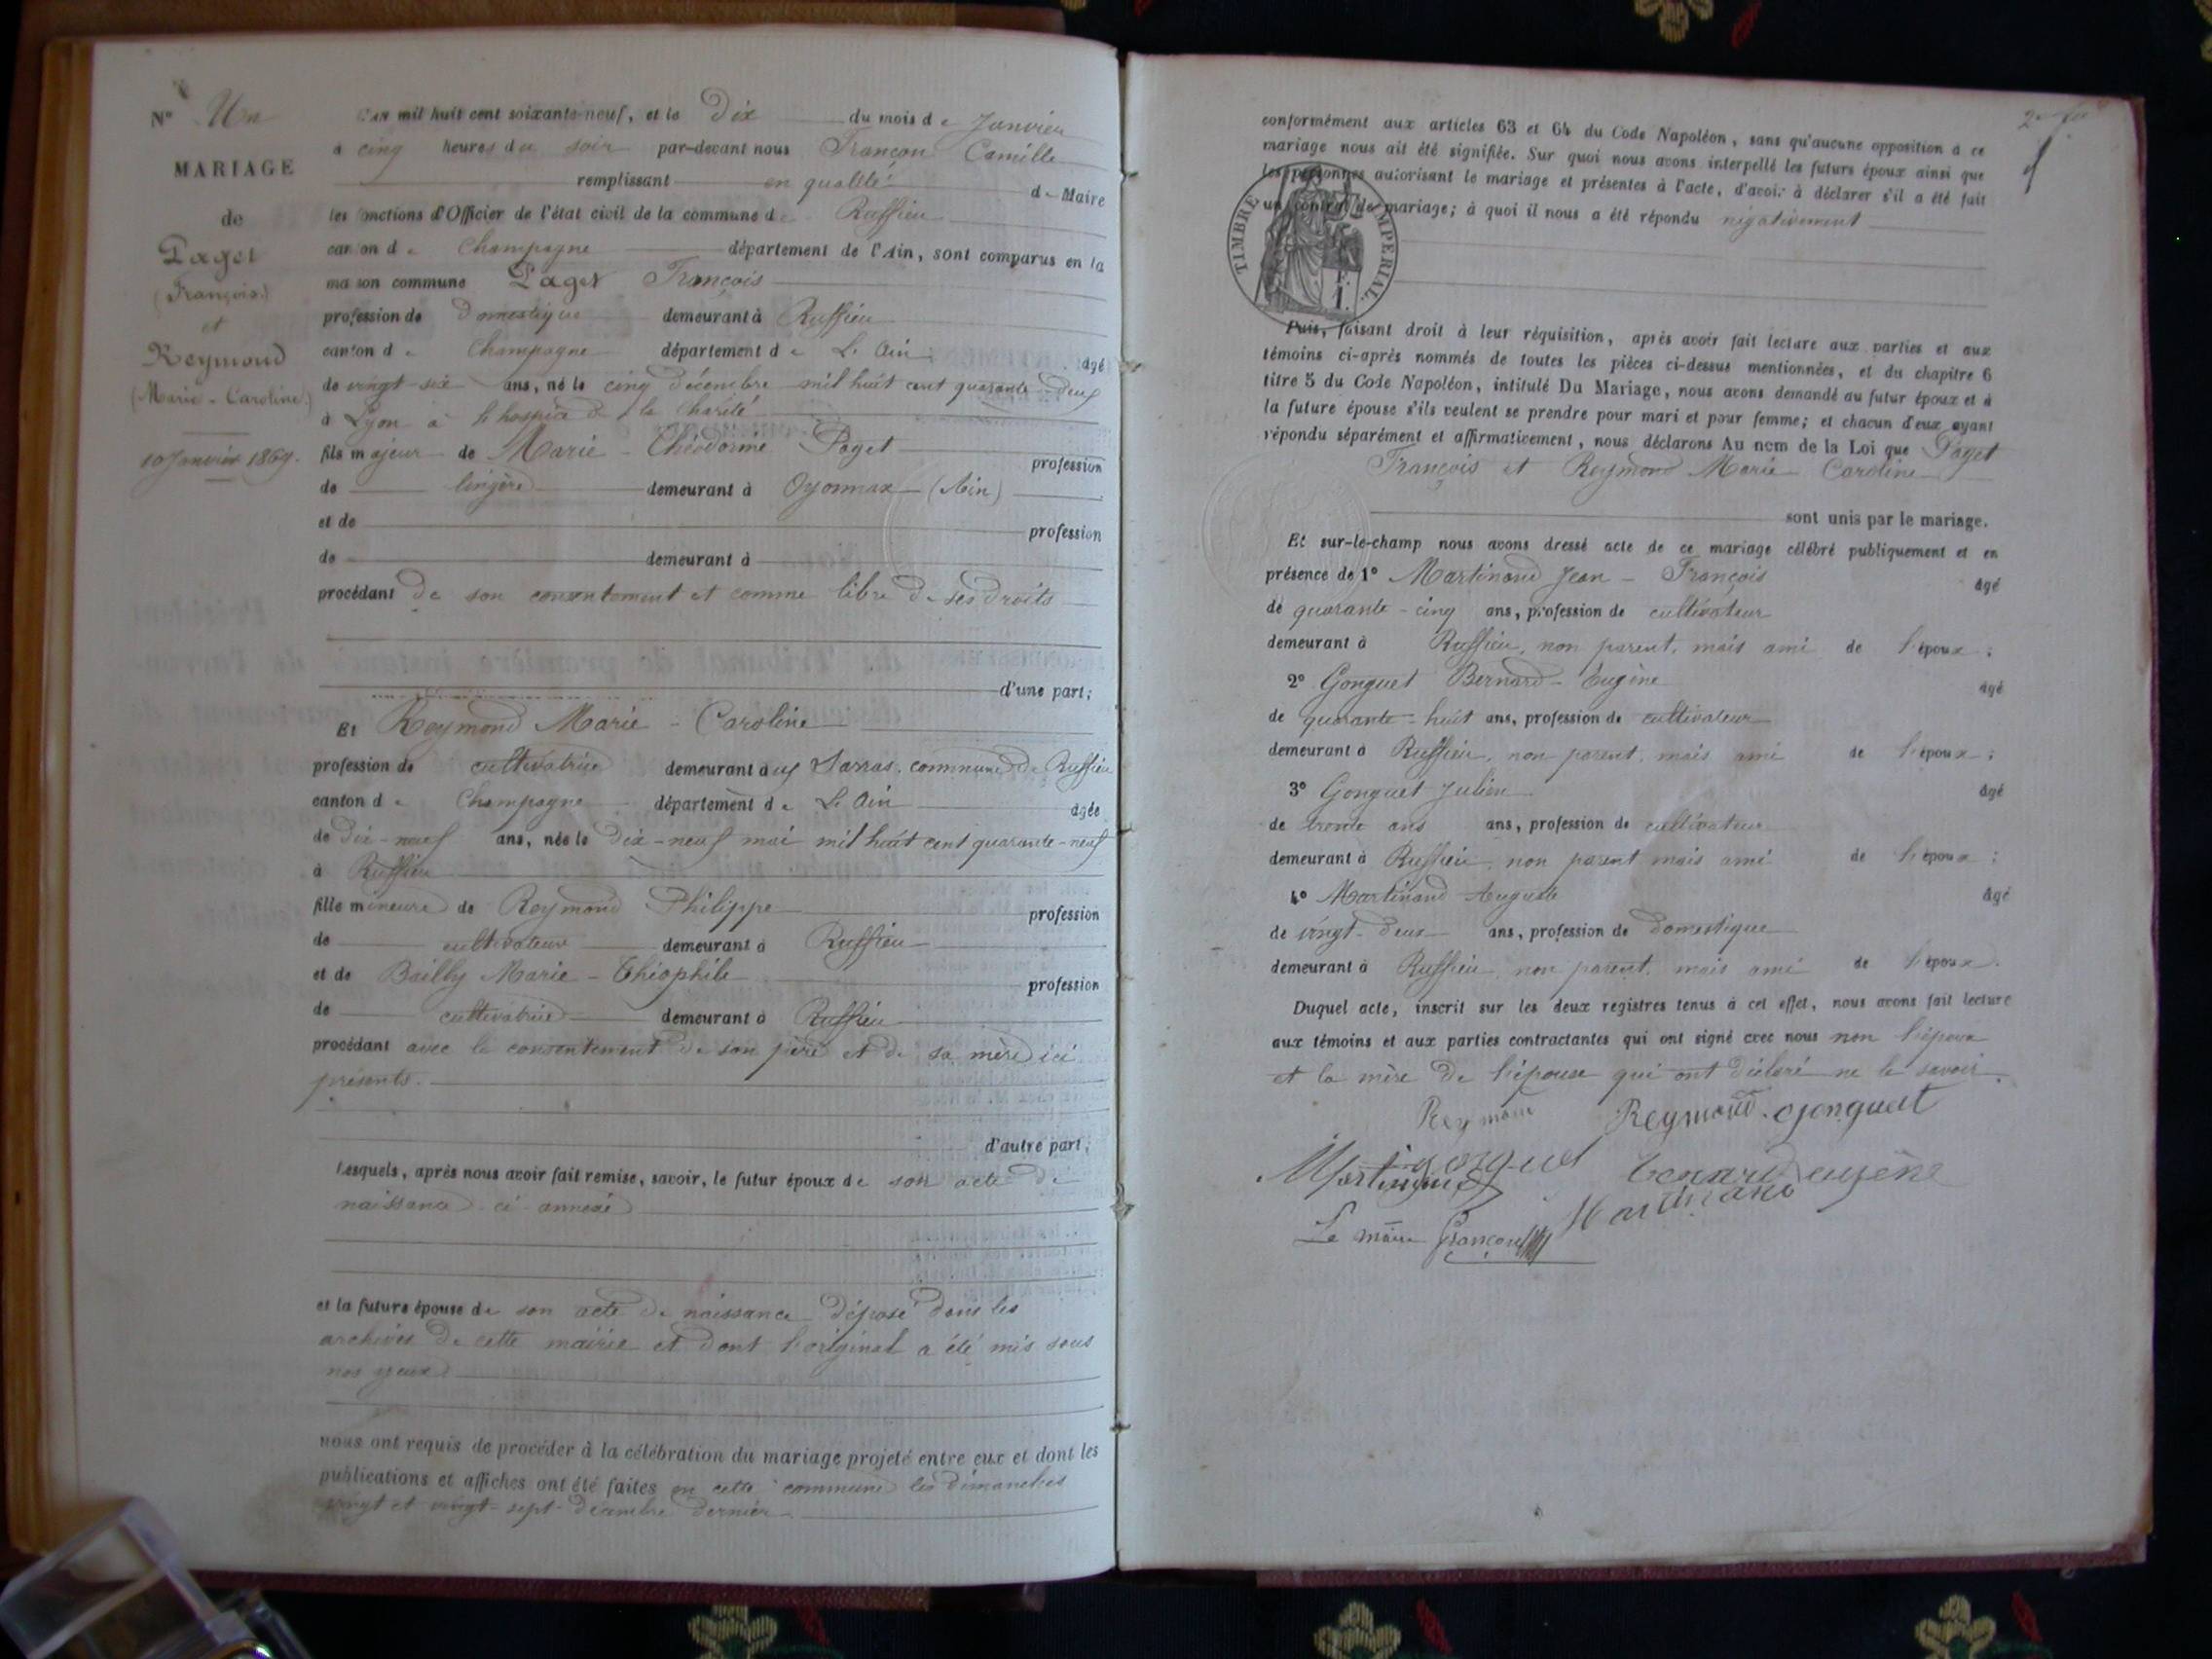 N° Un
MARIAGE
de
Paget
(François)
et
Reymond
(Marie-Caroline)
10 Janvier 1869.
L'an mil huit cent soixante-neuf, et le Dix du mois de Janvier
à cinq heures du soir par-devant nous Françon Camille
remplissant en qualité de Maire
les fonctions d'Officier de l'état civil de la commune de Ruffieu
canton de Champagne département de l'Ain, sont comparus en la
maison commune Paget François
profession de Domestique demeurant à Ruffieu
canton de Champagne département de L'Ain âgé
de vingt-six ans, né le cinq décembre mil huit cent quarante-deux
à Lyon à l'hospice de la Charité
fils majeur de Marie-Théodorine Paget profession
de lingère demeurant à Oyonnax (Ain)
et de profession
de demeurant à
procédant de son consentement et comme libre de ses droits
d'une part;
Et Reymond Marie-Caroline
profession de cultivatrice demeurant aux Sarras, commune de Ruffieu
canton de Champagne département de L'Ain âgée
de dix-neuf ans, née le dix-neuf mai mil huit cent quarante-neuf
à Ruffieu
fille mineure de Reymond Philippe profession
de cultivateur demeurant à Ruffieu
et de Bailly Marie-Théophile profession
de cultivatrice demeurant à Ruffieu
procédant avec le consentement de son père et de sa mère ici
présents.
d'autre part;
Lesquels, après nous avoir fait remise, savoir, le futur époux de son acte de
naissance ci-annexé
et la future épouse de son acte de naissance déposé dans les
archives de cette mairie et dont l'original a été mis sous
nos yeux
nous ont requis de procéder à la célébration du mariage projeté entre eux et dont les
publications et affiches ont été faites en cette commune les dimanches
vingt et vingt-sept décembre dernier
conformément aux articles 63 et 64 du Code Napoléon, sans qu'aucune opposition à ce
mariage nous ait été signifiée. Sur quoi nous avons interpellé les futurs époux ainsi que
les personnes autorisant le mariage et présentes à l'acte, d'avoir à déclarer s'il a été fait
un contrat de mariage; à quoi il nous a été répondu négativement
TIMBRE IMPÉRIAL.
F.
1.
Puis, faisant droit à leur réquisition, après avoir fait lecture aux parties et aux
témoins ci-après nommés de toutes les pièces ci-dessus mentionnées, et du chapitre 6
titre 5 du Code Napoléon, intitulé Du Mariage, nous avons demandé au futur époux et à
la future épouse s'ils veulent se prendre pour mari et pour femme; et chacun d'eux ayant
répondu séparément et affirmativement, nous déclarons Au nom de la Loi que Paget
François et Reymond Marie Caroline
sont unis par le mariage.
Et sur-le-champ nous avons dressé acte de ce mariage célébré publiquement et en
présence de 1° Martinand Jean-François âgé
de quarante-cinq ans, profession de cultivateur
demeurant à Ruffieu, non parent, mais ami de l'époux;
2° Gonguet Bernard-Eugène âgé
de quarante-huit ans, profession de cultivateur
demeurant à Ruffieu, non parent, mais ami de l'époux;
3° Gonguet Julien âgé
de trente ans ans, profession de cultivateur
demeurant à Ruffieu, non parent mais ami de l'époux;
4° Martinand Auguste âgé
de vingt-deux ans, profession de Domestique
demeurant à Ruffieu, non parent, mais ami de l'époux.
Duquel acte, inscrit sur les deux registres tenus à cet effet, nous avons fait lecture
aux témoins et aux parties contractantes qui ont signé avec nous non l'époux
et la mère de l'épouse qui ont déclaré ne le savoir.
Reymond Reymond gonguet
Martinand gonguet bernard eugène
Martinand
Le maire françon